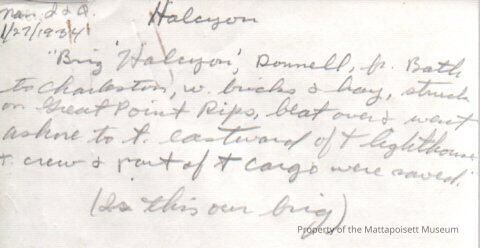 Halcyon
Nan. I & Q.
1/27/1834
"Brig 'Halcyon', Donnell, fr. Bath
to Charleston, w. bricks & hay, struck
on Great Point Rips, beat over & went
ashore to t. eastward of t lighthouse
t. crew & part of t cargo were saved."
(Is this our brig)
Property of the Mattapoisett Museum